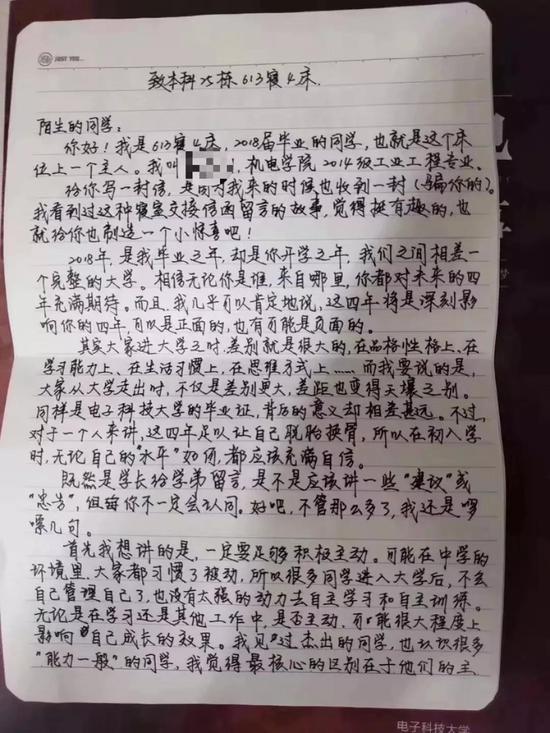 JUST YOU...
致本科25栋613寝4床.
陌生的同学：
你好！我是613寝4床，2018届毕业的同学，也就是这个床
位上一个主人。我叫，机电学院2014级工业工程专业、
给你写一封信，是因为我来的时候也收到一封（骗你的）。
我看到过这种寝室交接信函留言的故事，觉得挺有趣的，也
就给你也制造一个小惊喜吧！
2018年，是我毕业之年，却是你开学之年，我们之间相差一
个完整的大学。相信无论你是谁，来自哪里，你都对未来的四
年充满期待。而且，我几乎可以肯定地说，这四年将是深刻影
响你的四年，可以是正面的，也有可能是负面的。
其实大家进大学之时，差别就是很大的，在品格性格上、在
学习能力上、在生活习惯上，在思维方式上……而我要说的是，
大家从大学走出时，不仅是差别更大，差距也变得天壤之别。
同样是电子科技大学的毕业证，背后的意义却相差甚远。不过，
对于一个人来讲，这四年足以让自己脱胎换骨，所以在初入学
时，无论自己的"水平"如何，都应该充满自信。
既然是学长给学弟留言，是不是应该讲一些"建议"或
"忠告"，但每你不一定会认同。好吧，不管那么多了，我还是啰
嗦几句。
首先我想讲的是，一定要足够积极主动。可能在中学的
环境里，大家都习惯了被动，所以很多同学进入大学后，不会
自己管理自己了，也没有太强的动力去自主学习和自主训练。
无论是在学习还是其他工作中，是否主动，可能很大程度上
影响自己成长的效果。我见过杰出的同学，也认识很多
"能力一般"的同学，我觉得最核心的区别在于他们的主
电子科技大学